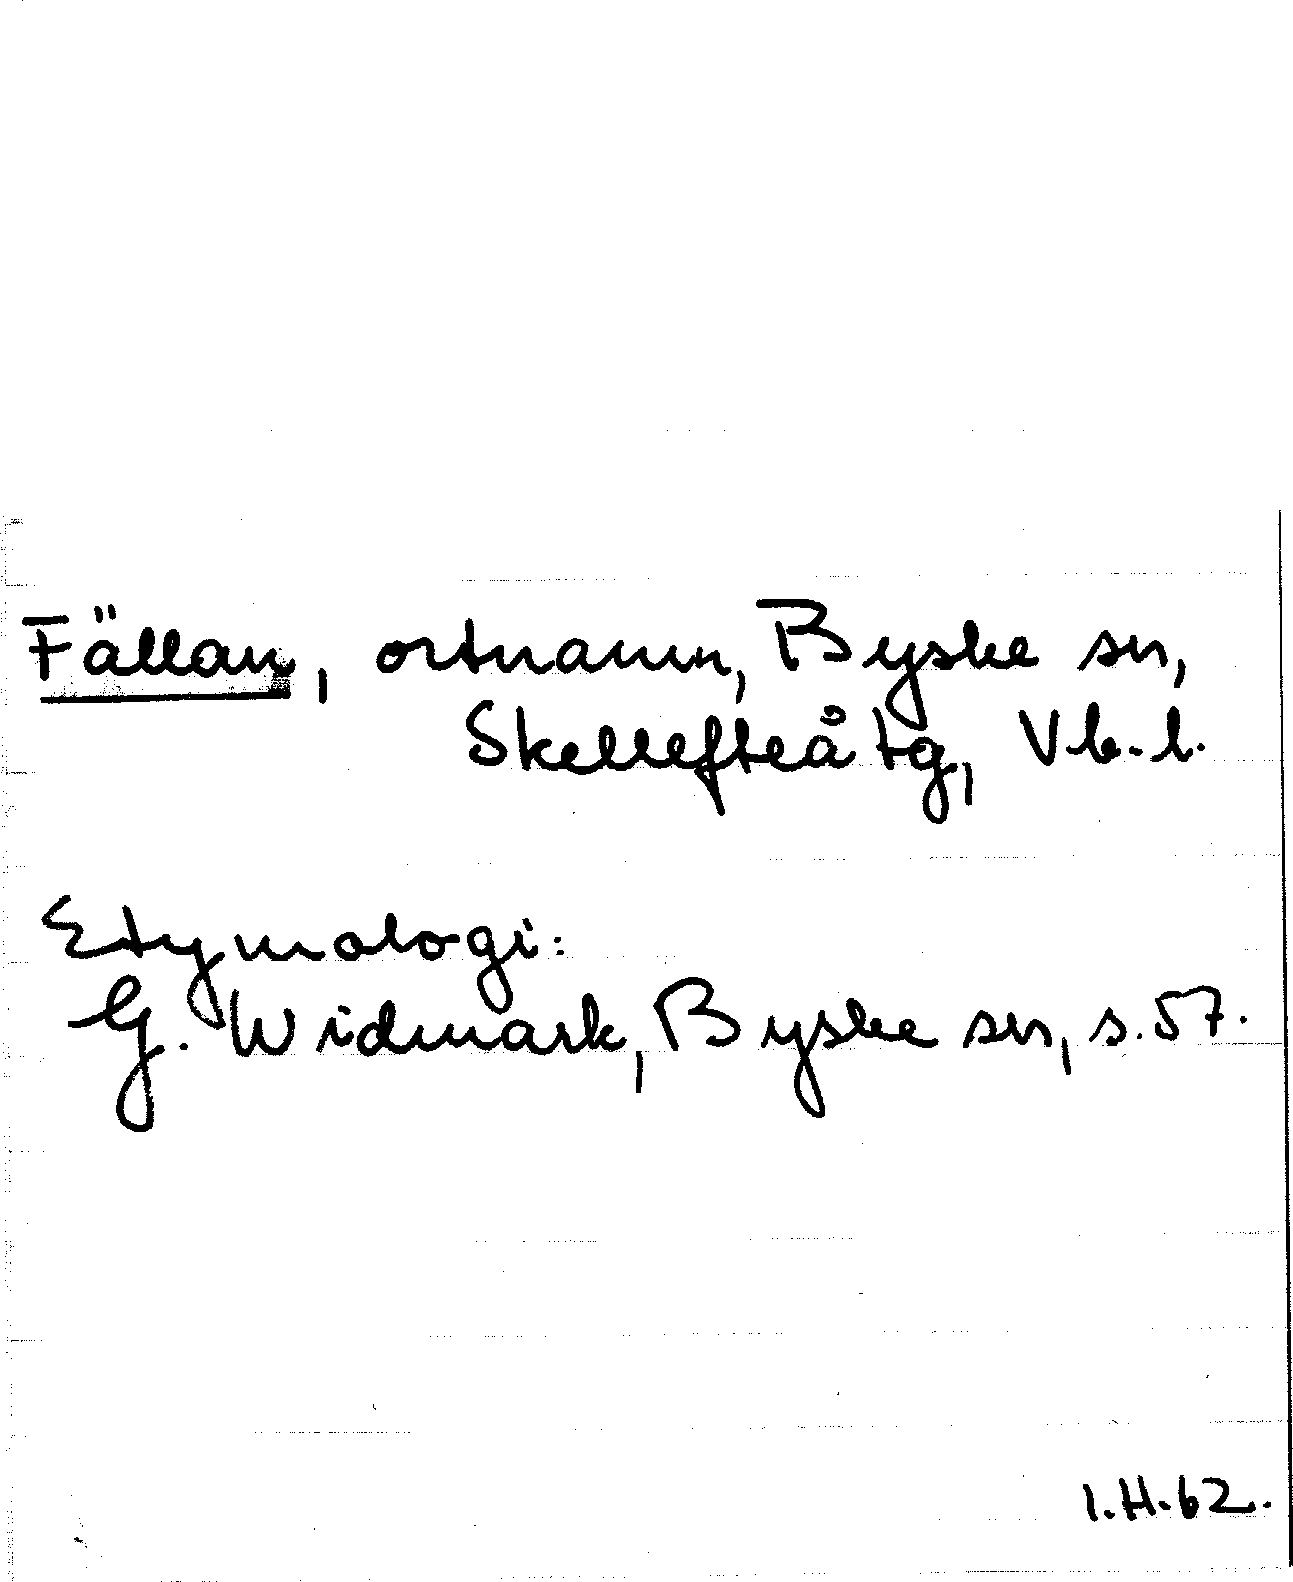 Fällan, ortnamn, Byske sn,
Skellefteå tg, Vb.l.
Etymologi:
G. Widmark, Byske sn, s. 57.
I.H.62.